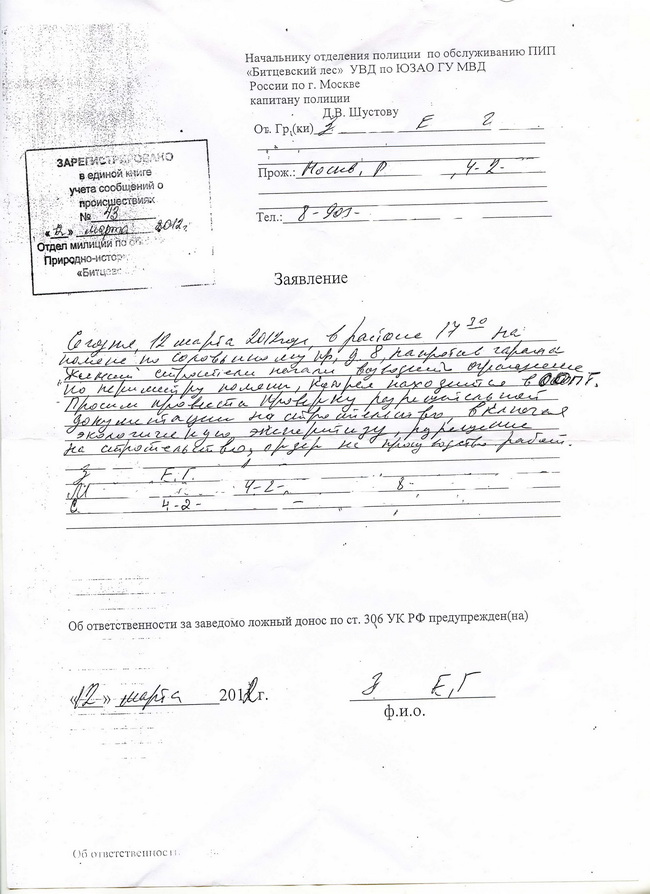 Начальнику отделения полиции по обслуживанию ПИП
«Битцевский лес» УВД по ЮЗАО ГУ МВД
России по г. Москве
капитану полиции
Д.В. Шустову
От. Гр.(ки) З Е Г
Прож.: , 4-2-
Тел.: 8-901-
ЗАРЕГИСТРИРОВАНО
в единой книге
учета сообщений о
происшествиях
№ 43
«12» марта 2012г
Отдел милиции по
Природно-истор
«Битцевс
Заявление
Сегодня, 12 марта 2012 года, в районе 17 30 на
поляне по Соловьиному пр, д. 8, напротив гаража
строители начали возводить ограждение
по периметру поляны, которая находится в ООПТ.
Просим провести проверку разрешительной
документации на строительство, включая
экологическую экспертизу, разрешение
на строительство, ордер на производство работ.
З Е.Г.
4-2- 8-
С 4-2-
Об ответственности за заведомо ложный донос по ст. 306 УК РФ предупрежден(на)
«12» марта 2012г. З Е,Г
ф.и.о.
Об ответственности